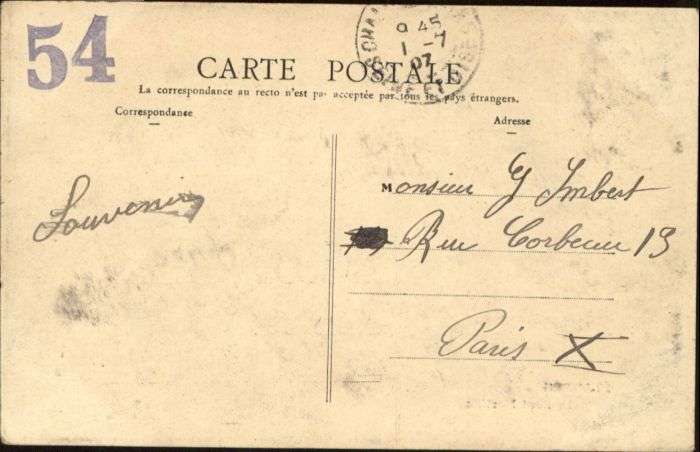 54
9 45
1 -7
07
CARTE POSTALE
La correspondance au recto n'est pas acceptée par tous les pays étrangers.
Correspondance
Adresse
Souvenir
Monsieur Y Imbert
Rue Corbeau 13
Paris X